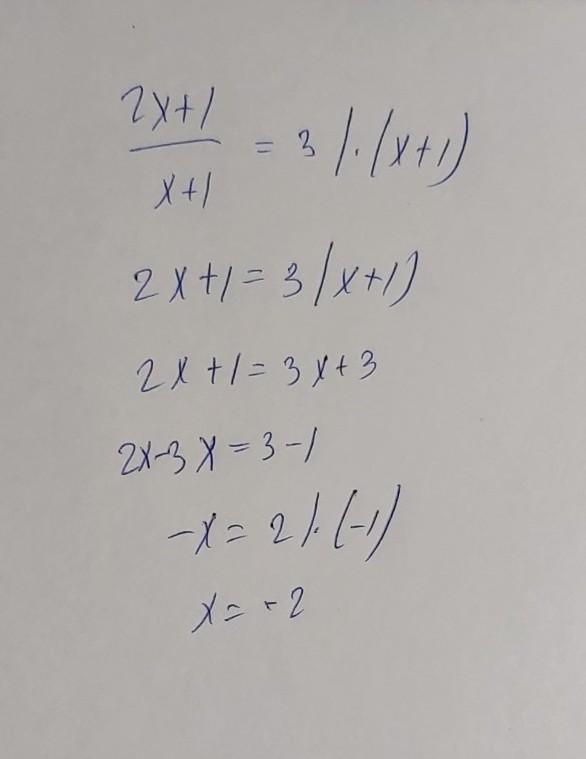 2x+1
x+1
= 3 /·(x+1)
2x+1=3(x+1)
2x+1=3x+3
2x-3x=3-1
-x=2 /·(-1)
x=-2